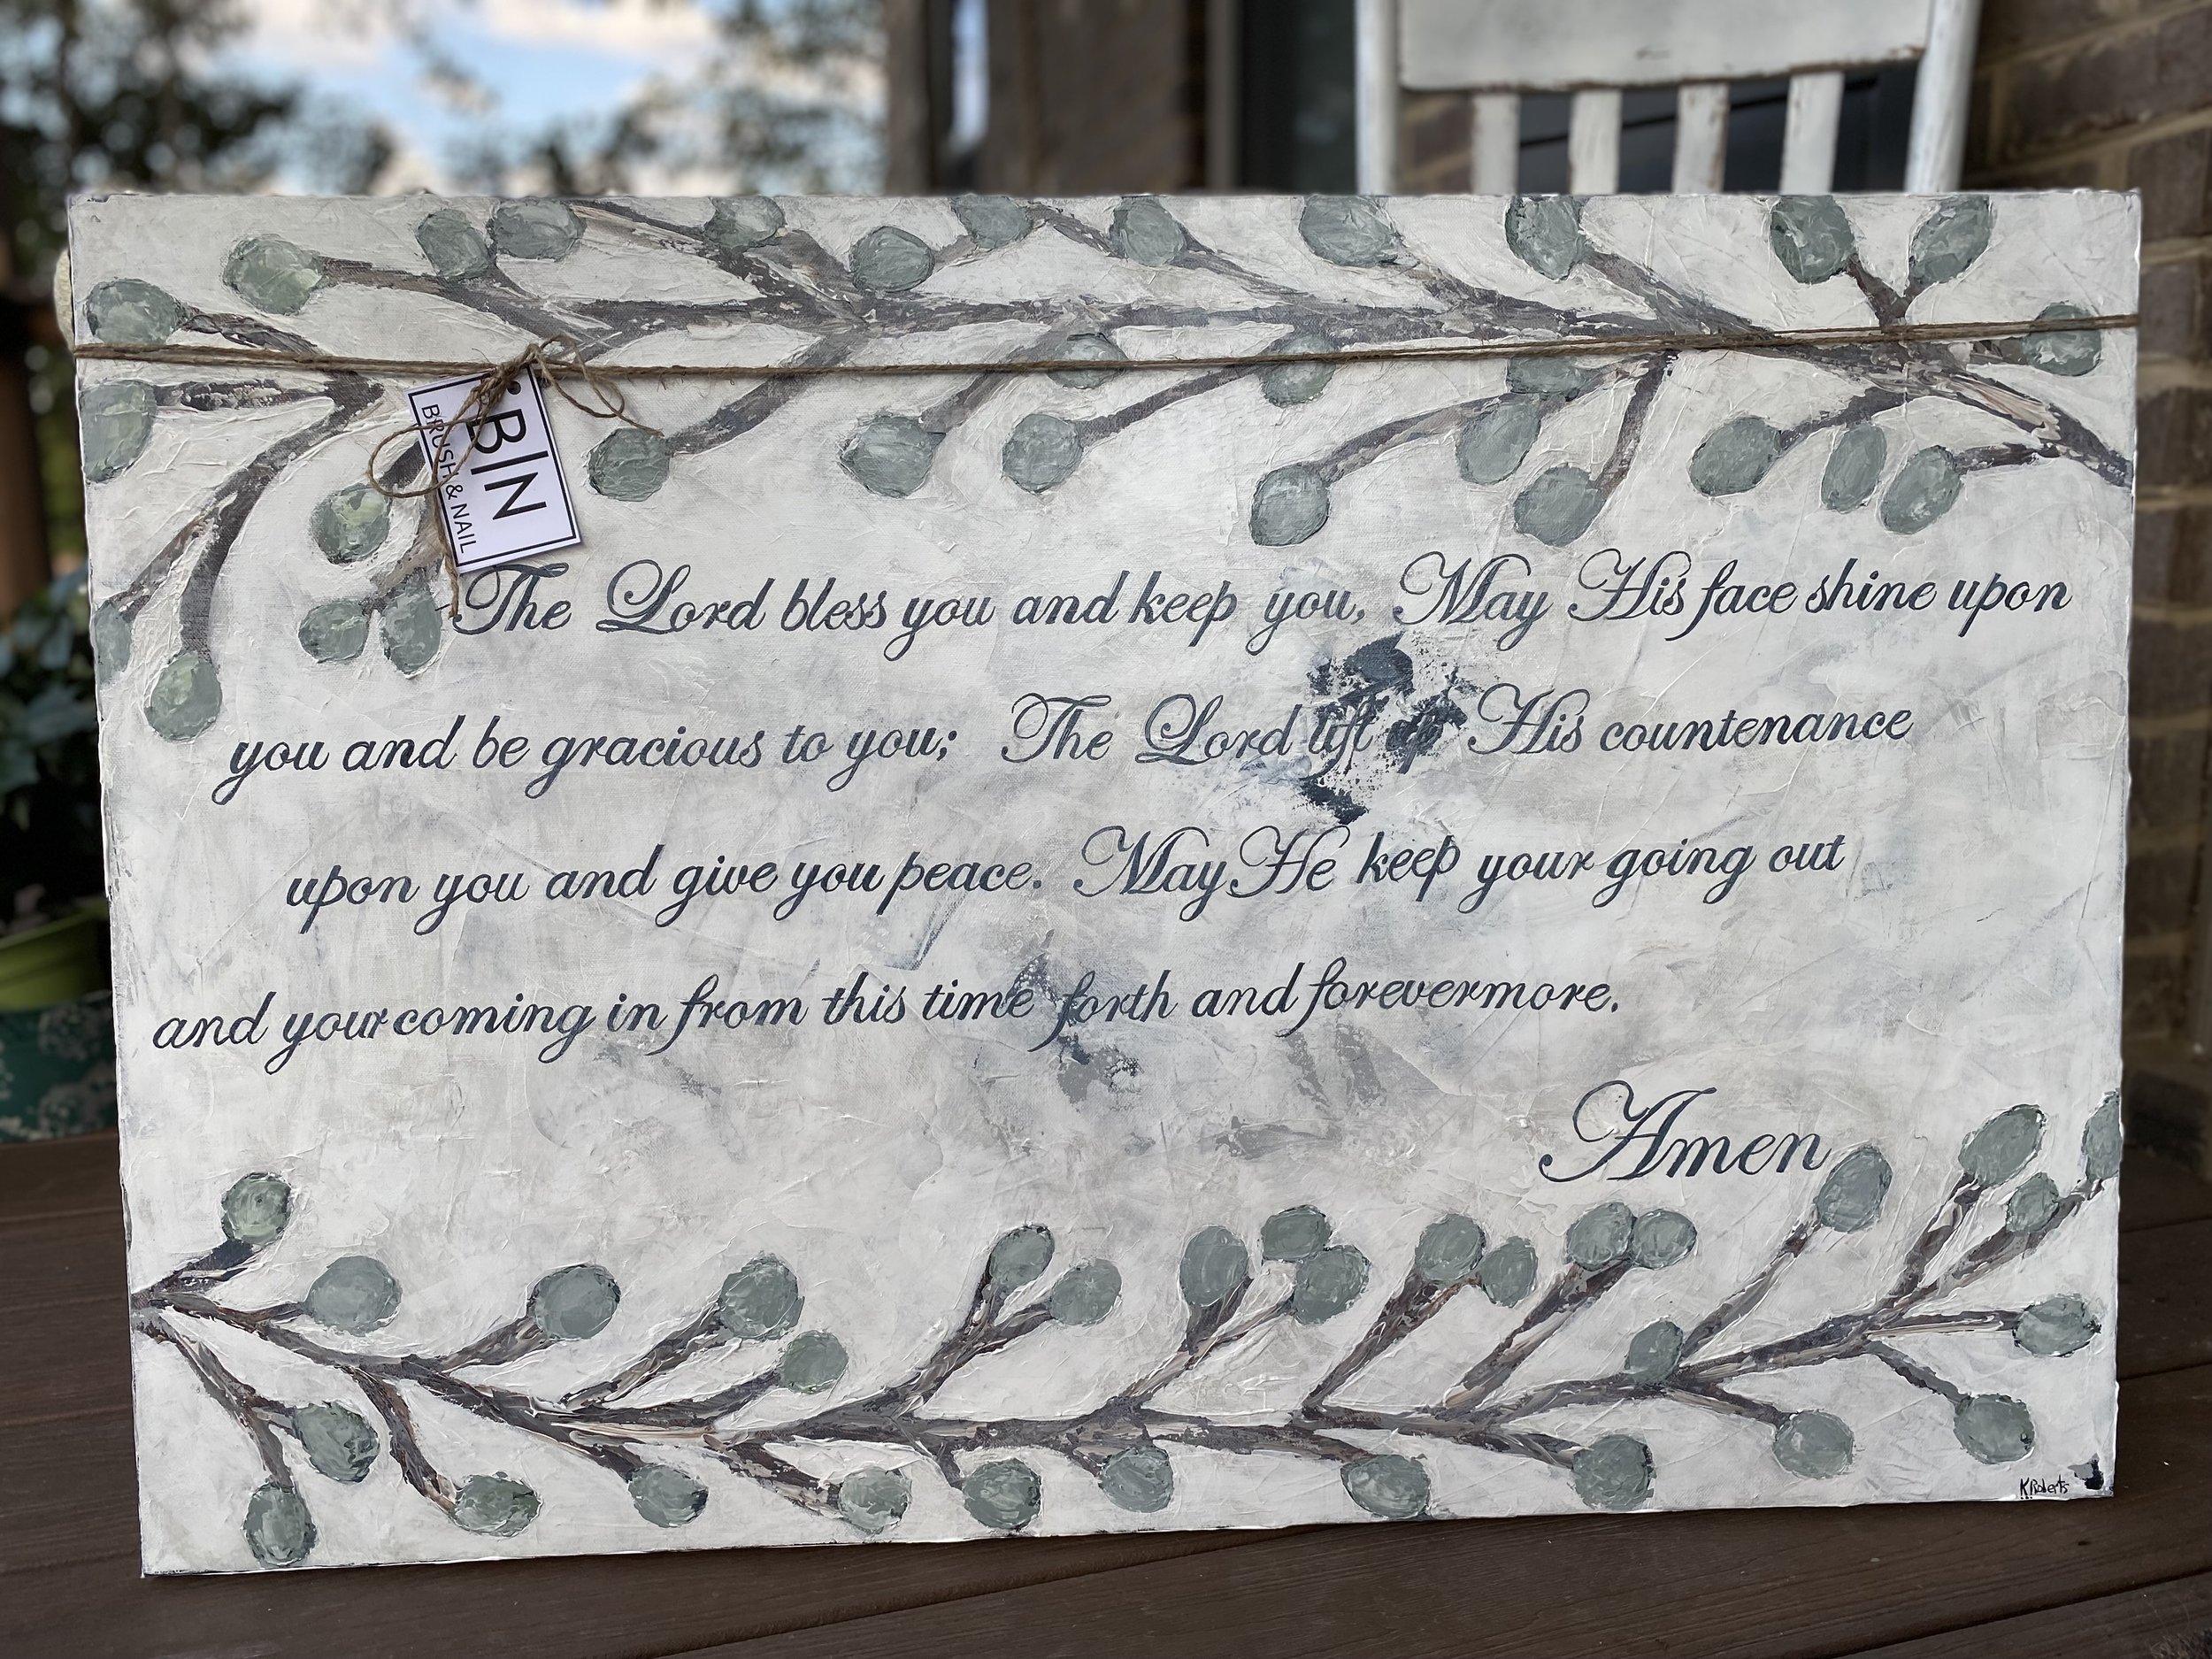 B|N
BRUSH & NAIL
The Lord bless you and keep you, May His face shine upon
you and be gracious to you; The Lord lift up His countenance
upon you and give you peace. May He keep your going out
and your coming in from this time forth and forevermore.
Amen
K Roberts